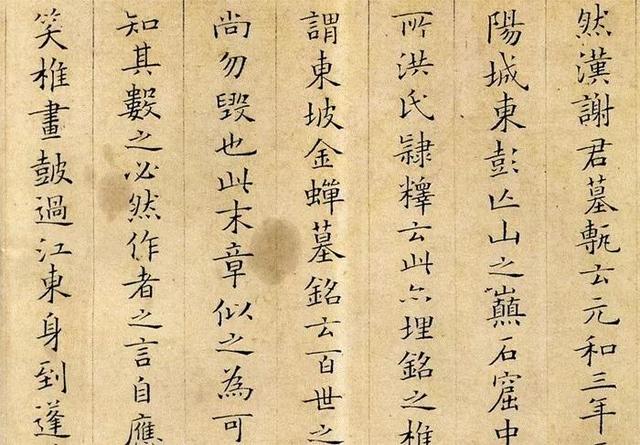 然漢謝君墓甎云元和三年
陽城東彭亾山之巓石窟中
所洪氏隸釋云此亦埋銘之椎
謂東坡金蟬墓銘云百世之
尚勿毀也此末章似之為可
知其數之必然作者之言自應
笑椎畫鼓過江東身到蓬